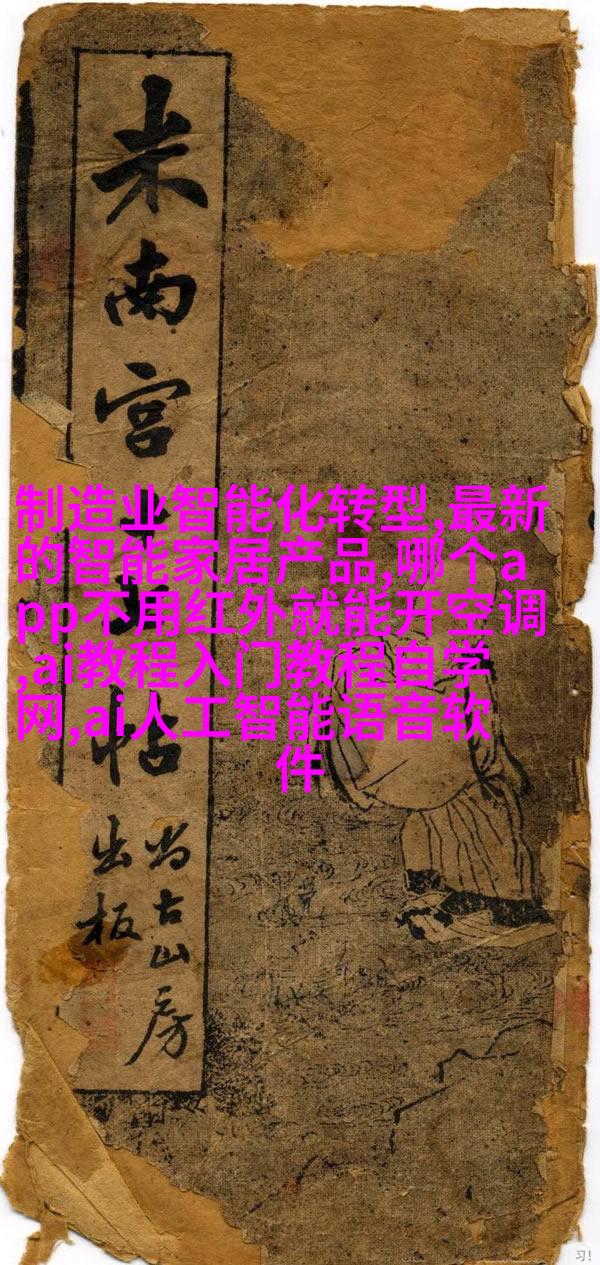 米南宫
帖
尚古山房
出板
制造业智能化转型,最新
的智能家居产品,哪个a
pp不用红外就能开空调
,ai教程入门教程自学
网,ai人工智能语音软
件
习!